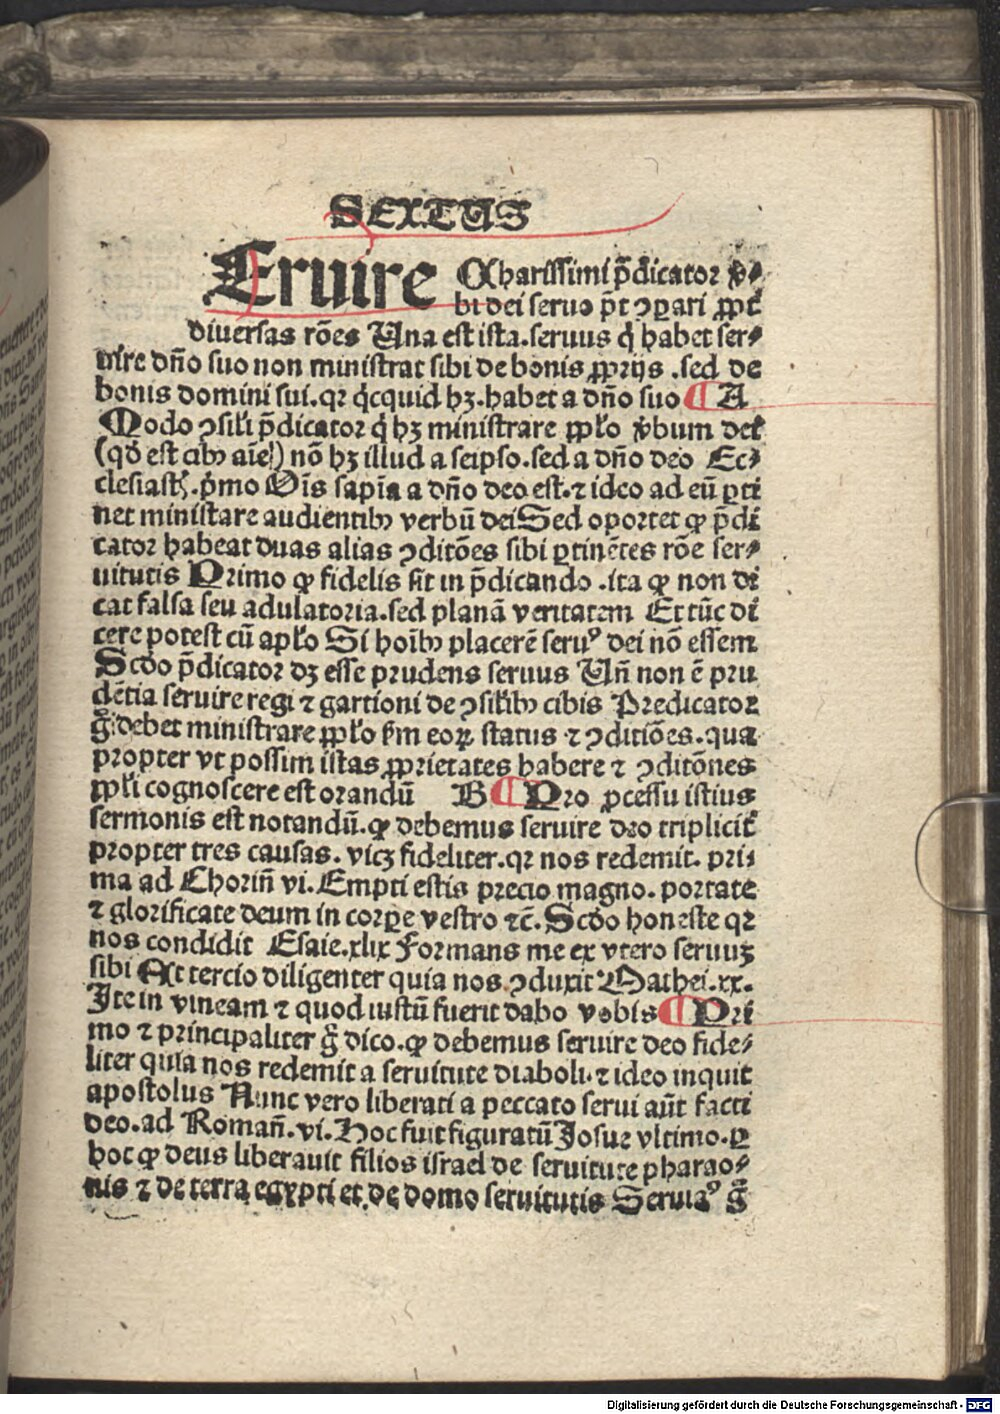 SEXTUS
Eruire Charissimi p̄dicator v̾⸗
bi dei seruꝰ p̄t ↄꝑari ꝓpt̄
diversas rōes Una est ista.seruus q̇ habet ser⸗
vire dn̄o suo non ministrat sibi de bonis ꝓprijs .sed de
bonis domini sui.qr q̇cquid hꝫ.habet a dn̄o suo ¶ A
Modo ↄsil'i p̄dicator q̇ hꝫ ministrare ꝓpl'o v̾bum dei
(qđ est cibꝰ aīe) nō hꝫ illud a seipso.sed a dn̄o deo Ec⸗
clesiastꝭ.p̄mo Oīs sapīa a dn̄o deo est.⁊ ideo ad eū ꝑti
net ministare audientibꝰ verbū dei Sed oportet ꝙ p̄di
cator habeat duas alias ↄditōes sibi ꝑtinētes rōe ser⸗
uitutis Primo ꝙ fidelis sit in p̄dicando .ita ꝙ non di
cat falsa seu adulatoria.sed planā veritatem Et tūc di
cere potest cū apl'o Si hoībꝰ placerē seruꝰ dei nō essem
Scđo p̄dicator dꝫ esse prudens seruus Un̄ non ē pru
dētia seruire regi ⁊ gartioni de ↄsil'ibꝰ cibis Predicator
g̊.debet ministrare ꝓpl'o ẜm eoꝝ status ⁊ ↄditiōes.qua
propter vt possim istas ꝓprietates habere ⁊ ↄditōnes
ꝓpl'i cognoscere est orandū B ¶ Pro ꝓcessu istius
sermonis est notandū.ꝙ debemus seruire deo triplicit̄
propter tres causas. vicꝫ fideliter.qr nos redemit. pri⸗
ma ad Chorin̄ vi. Empti estis precio magno. portate
⁊ glorificate deum in corꝑe vestro ⁊c̄. Scđo honeste qr
nos condidit Esaie.xlix Formans me ex vtero seruuꝫ
sibi At tercio diligenter quia nos ↄduxit Mathei.xx.
Ite in vineam ⁊ quod iustū fuerit dabo vobis ¶ Pri
mo ⁊ principaliter g̊ dico.ꝙ debemus seruire deo fide⸗
liter quia nos redemit a seruitute diaboli.⁊ ideo inquit
apostolus Nunc vero liberati a peccato serui aūt facti
deo.ad Roman̄.vi. Hoc fuit figuratū Josue vltimo.ꝑ
hoc ꝙ deus liberauit filios israel de seruitute pharao⸗
nis ⁊ de terra egypti et.de domo seruitutis Seruiaꝰ g̊
Digitalisierung gefördert durch die Deutsche Forschungsgemeinschaft - DFG